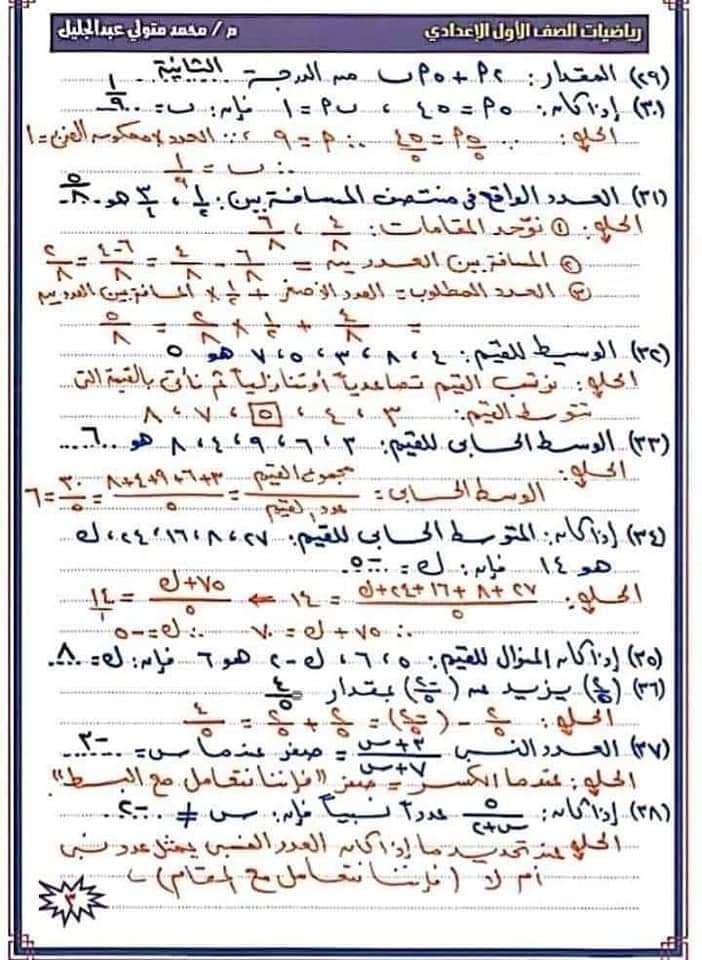 رياضيات الصف الأول الإعدادي
م / محمد متولي عبدالجليل
(٢٩) المقدار: ٢م + ٥م ب من الدرجة الثانية
(٣٠) إذا كان: ٥م = ٤٥ ، م ب = ١ فإن: ب = ١/٩
الحل: ∵ ٥م/٥ = ٤٥/٥ ∴ م = ٩ ∵ العدد × معكوسه الضربى = ١
∴ ب = ١/٩
(٣١) العدد الواقع فى منتصف المسافة بين: ١/٢ ، ٣/٤ هو ٥/٨
الحل: ① نوحد المقامات: ٤/٨ ، ٦/٨
② المسافة بين العددين = ٦/٨ - ٤/٨ = ٦-٤/٨ = ٢/٨
③ العدد المطلوب = العدد الأصغر + ١/٢ × المسافة بين العددين
= ٤/٨ + ١/٢ × ٢/٨ = ٥/٨
(٣٢) الوسيط للقيم: ٤ ، ٨ ، ٣ ، ٥ ، ٧ هو ٥
الحل: نرتب القيم تصاعدياً أو تنازلياً ثم نأتى بالقيمة التى
تتوسط القيم: ٣ ، ٤ ، ٥ ، ٧ ، ٨
(٣٣) الوسط الحسابى للقيم: ٣ ، ٦ ، ٩ ، ٤ ، ٨ هو ٦
الحل:
الوسط الحسابى = مجموع القيم/عدد القيم = ٣+٦+٩+٤+٨/٥ = ٣٠/٥ = ٦
(٣٤) إذا كان: المتوسط الحسابى للقيم: ٢٧ ، ٨ ، ١٦ ، ٢٤ ، ك
هو ١٤ فإن: ك = -٥
الحل: ٢٧ + ٨ + ١٦ + ٢٤ + ك/٥ = ١٤ ← ٧٥ + ك/٥ = ١٤/١
∴ ٧٥ + ك = ٧٠ ∴ ك = -٥
(٣٥) إذا كان المنوال للقيم: ٥ ، ٦ ، ك-٢ هو ٦ فإن: ك = ٨
(٣٦) (٢/٥) يزيد عن (-٢/٥) بمقدار ٤/٥
الحل: ٢/٥ - (-٢/٥) = ٢/٥ + ٢/٥ = ٤/٥
(٣٧) العدد النسبى س+٣/س+٧ = صفر عندما س = -٣
الحل: عندما الكسر = صفر "فإننا نتعامل مع البسط"
(٣٨) إذا كان: ٥/س+٢ عدداً نسبياً فإن: س ≠ -٢
الحل عند تحديد ما إذا كان العدد النسبى يمثل عدد نسبى
أم لا (فإننا نتعامل مع المقام)
٣